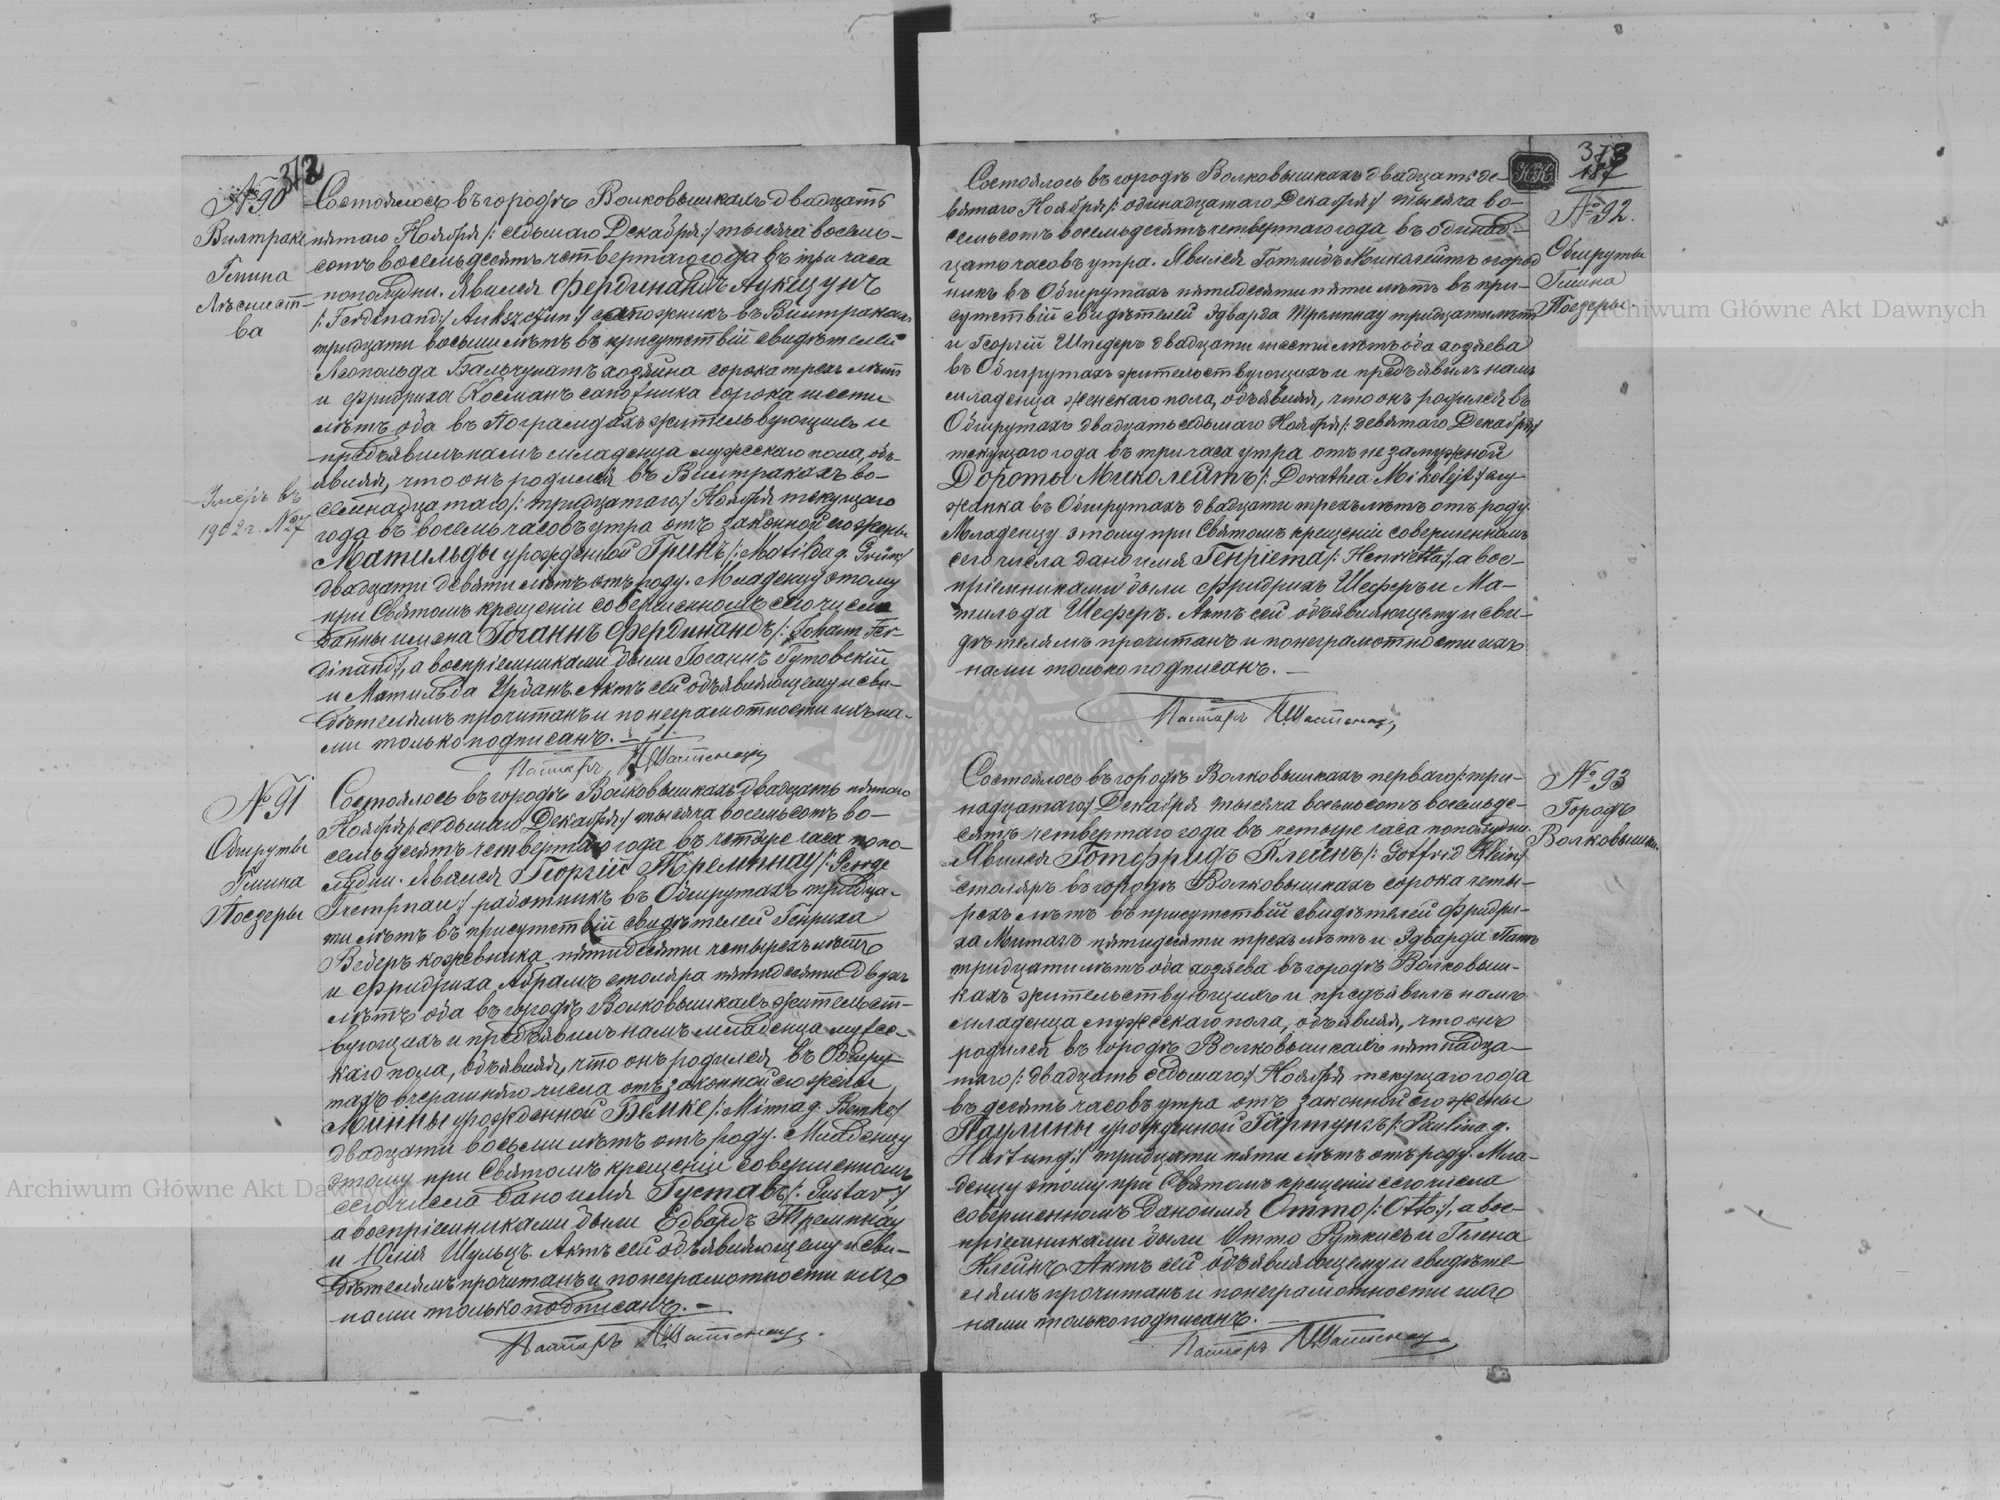 372
№ 90
Вилтраке
Гмина
Лѣсничест-
ва
Состоялось въ городѣ Волковышкахъ двадцать
пятаго Ноября /: седьмаго Декабря :/ тысяча восемь-
сотъ восемьдесятъ четвертаго года въ три часа
пополудни. Явился Фердинандъ Аукшунъ
/: Ferdinand Aukszun :/ сапожникъ въ Вилтракахъ
тридцати восьми лѣтъ въ присутствіи свидѣтелей
Леопольда хозяина сорока трехъ лѣтъ
и Фридриха Космана сапожника сорока шести
лѣтъ оба въ жительствующихъ и
предъявилъ намъ младенца мужескаго пола, объ-
являя, что онъ родился въ Вилтракахъ во-
семнадцатаго /: тридцатаго :/ Ноября текущаго
года въ восемь часовъ утра отъ законной его жены
Матильды урожденной Гринъ /: Matilda g. Grün :/
двадцати девяти лѣтъ отъ роду. Младенцу этому
при Святомъ крещеніи совершенномъ сего числа
даны имена Іоганнъ Фердинандъ /: Johann Fer-
dinand :/, а воспріемниками были Іоганнъ Гутовскій
и Матильда Урбанъ. Актъ сей объявляющему и сви-
дѣтелямъ прочитанъ и по неграмотности ихъ на-
ми только подписанъ. —
Пасторъ
Умеръ въ
1902 г. № 27
№ 91
Обшруты
Гмина
Поезеры
Состоялось въ городѣ Волковышкахъ двадцать пятаго
Ноября /: седьмаго Декабря :/ тысяча восемьсотъ во-
семьдесятъ четвертаго года въ четыре часа попо-
лудни. Явился Георгій Тремпнау /: George
Trempnau :/ работникъ въ Обшрутахъ тридца-
ти лѣтъ въ присутствіи свидѣтелей Генриха
Веберъ кожевника пятидесяти четырехъ лѣтъ
и Фридриха Абрамъ столяра пятидесяти двухъ
лѣтъ оба въ городѣ Волковышкахъ жительст-
вующихъ и предъявилъ намъ младенца мужес-
каго пола, объявляя, что онъ родился въ Обшру-
тахъ вчерашняго числа отъ законной его жены
Минны урожденной Бемке /: Minna g. Bemke :/
двадцати восьми лѣтъ отъ роду. Младенцу
этому при Святомъ крещеніи совершенномъ
сего числа дано имя Густавъ /: Gustav :/,
а воспріемниками были Едвардъ Тремпнау
и Юлія Шульцъ. Актъ сей объявляющему и сви-
дѣтелямъ прочитанъ и по неграмотности ихъ
нами только подписанъ. —
Пасторъ
373
187
№ 92.
Обшруты
Гмина
Поезеры
Состоялось въ городѣ Волковышкахъ двадцать де-
вятаго Ноября /: одинадцатаго Декабря :/ тысяча во-
семьсотъ восемьдесятъ четвертаго года въ одинад-
цать часовъ утра. Явился Готлибъ Миколейтъ огород-
никъ въ Обшрутахъ пятидесяти пяти лѣтъ въ при-
сутствіи свидѣтелей Эдварда Тремпнау тридцати лѣтъ
и Георгій Шнедеръ двадцати шести лѣтъ оба хозяева
въ Обшрутахъ жительствующихъ и предъявилъ намъ
младенца женскаго пола, объявляя, что онъ родился въ
Обшрутахъ двадцать седьмаго Ноября /: девятаго Декабря :/
текущаго года въ три часа утра отъ незамужной
Дороты Миколейтъ /: Dorathea Mikolejt :/ слу-
жанка въ Обшрутахъ двадцати трехъ лѣтъ отъ роду.
Младенцу этому при Святомъ крещеніи совершенномъ
сего числа дано имя Генріета /: Henrietta :/, а вос-
пріемниками были Фридрихъ Шеферъ и Ма-
тильда Шеферъ. Актъ сей объявляющему и сви-
дѣтелямъ прочитанъ и по неграмотности ихъ
нами только подписанъ. —
Пасторъ
№ 93
Городъ
Волковышки.
Состоялось въ городѣ Волковышкахъ перваго /: три-
надцатаго :/ Декабря тысяча восемьсотъ восемьде-
сятъ четвертаго года въ четыре часа пополудни.
Явился Готфридъ Клейнъ /: Gotfrid Klein :/
столяръ въ городѣ Волковышкахъ сорока четы-
рехъ лѣтъ въ присутствіи свидѣтелей Фридри-
ха Митагъ пятидесяти трехъ лѣтъ и Эдварда
тридцати лѣтъ оба хозяева въ городѣ Волковыш-
кахъ жительствующихъ и предъявилъ намъ
младенца мужескаго пола, объявляя, что онъ
родился въ городѣ Волковышкахъ пятнадца-
таго /: двадцать седьмаго :/ Ноября текущаго года
въ десять часовъ утра отъ законной его жены
Паулины урожденной Гартунгъ /: Paulina g.
Hartung :/ тридцати пяти лѣтъ отъ роду. Мла-
денцу этому при Святомъ крещеніи сего числа
совершенномъ дано имя Отто /: Otto :/, а вос-
пріемниками были Отто Руткисъ и Гелена
Клейнъ. Актъ сей объявляющему и свидѣте-
лямъ прочитанъ и по неграмотности ихъ
нами только подписанъ. —
Пасторъ
Archiwum Główne Akt Dawnych
Archiwum Główne Akt Dawnych